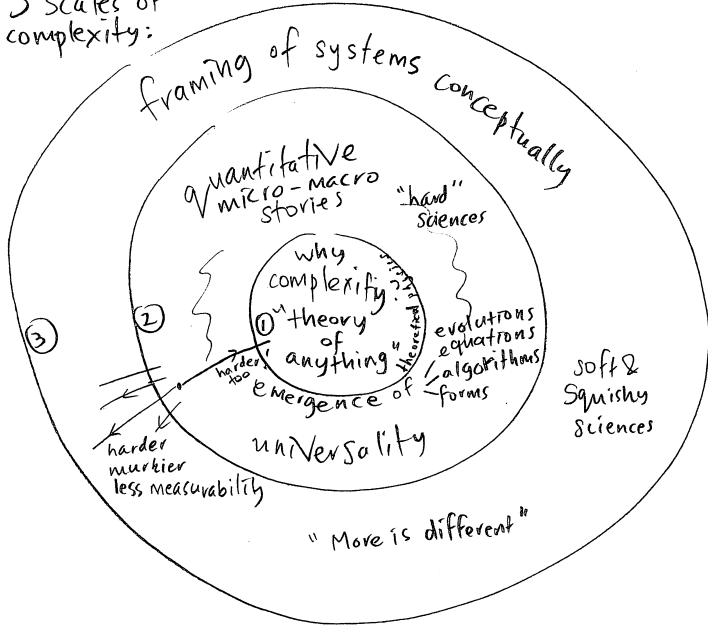 3 scales of
complexity:
framing of systems conceptually
quantitative
micro-macro
stories
"hard"
sciences
why
complexify?
① "theory
of
anything"
theoretical physics
②
③
harder
too
emergence of
evolutions
equations
algorithms
forms
universality
soft &
squishy
sciences
harder
murkier
less measurability
"More is different"